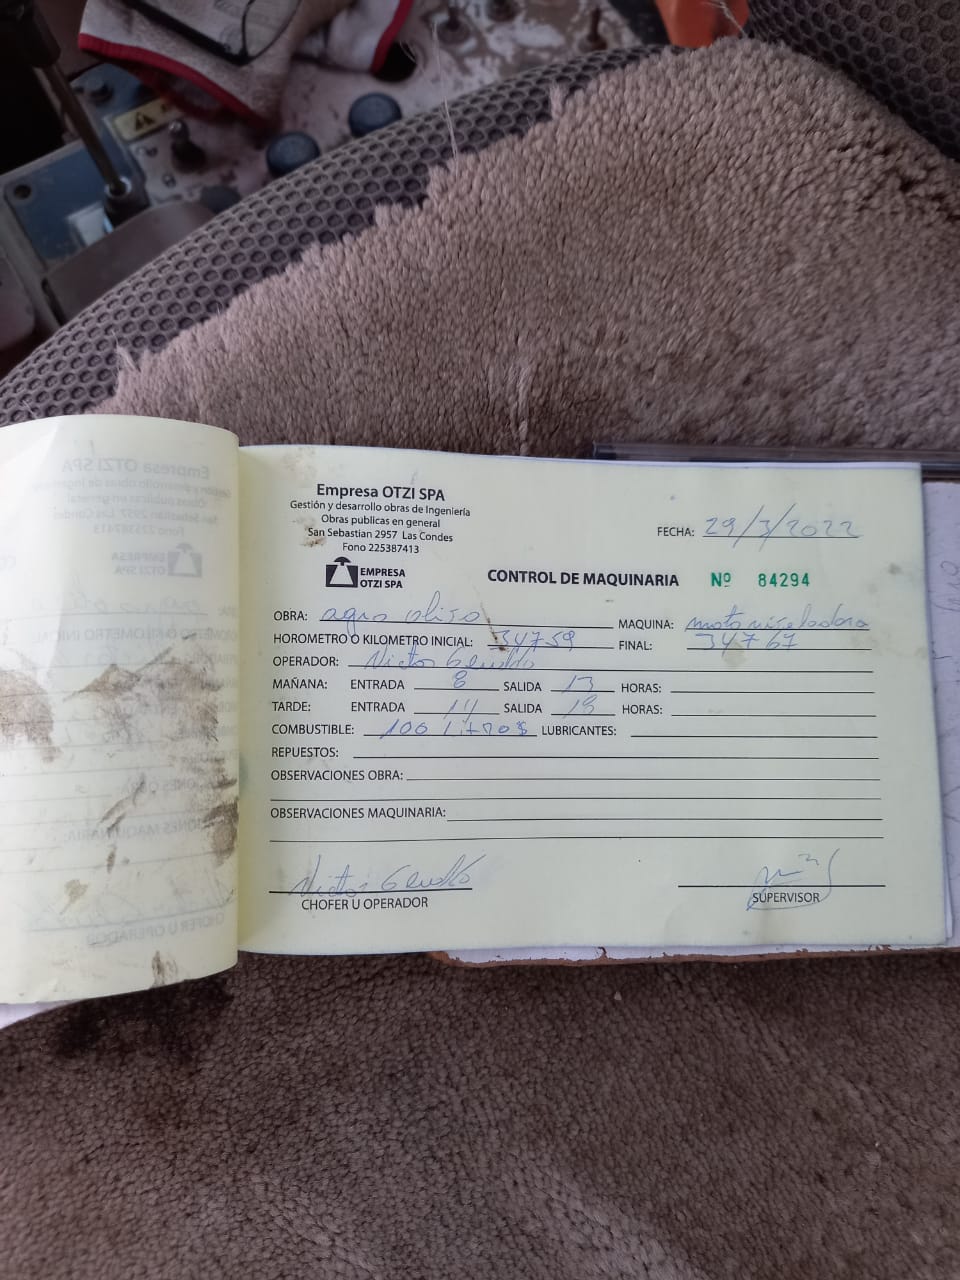 Empresa OTZI SPA
Gestión y desarrollo obras de Ingeniería
Obras publicas en general
San Sebastian 2957 Las Condes
Fono 225387413
EMPRESA
OTZI SPA
FECHA: 29/3/2022
CONTROL DE MAQUINARIA Nº 84294
OBRA: agro oliso MAQUINA: motoniseladora
HOROMETRO O KILOMETRO INICIAL: 34759 FINAL: 34767
OPERADOR: Victor
MAÑANA: ENTRADA 8 SALIDA 13 HORAS:
TARDE: ENTRADA 14 SALIDA 18 HORAS:
COMBUSTIBLE: 100 Litros LUBRICANTES:
REPUESTOS:
OBSERVACIONES OBRA:
OBSERVACIONES MAQUINARIA:
Victor
CHOFER U OPERADOR
SUPERVISOR